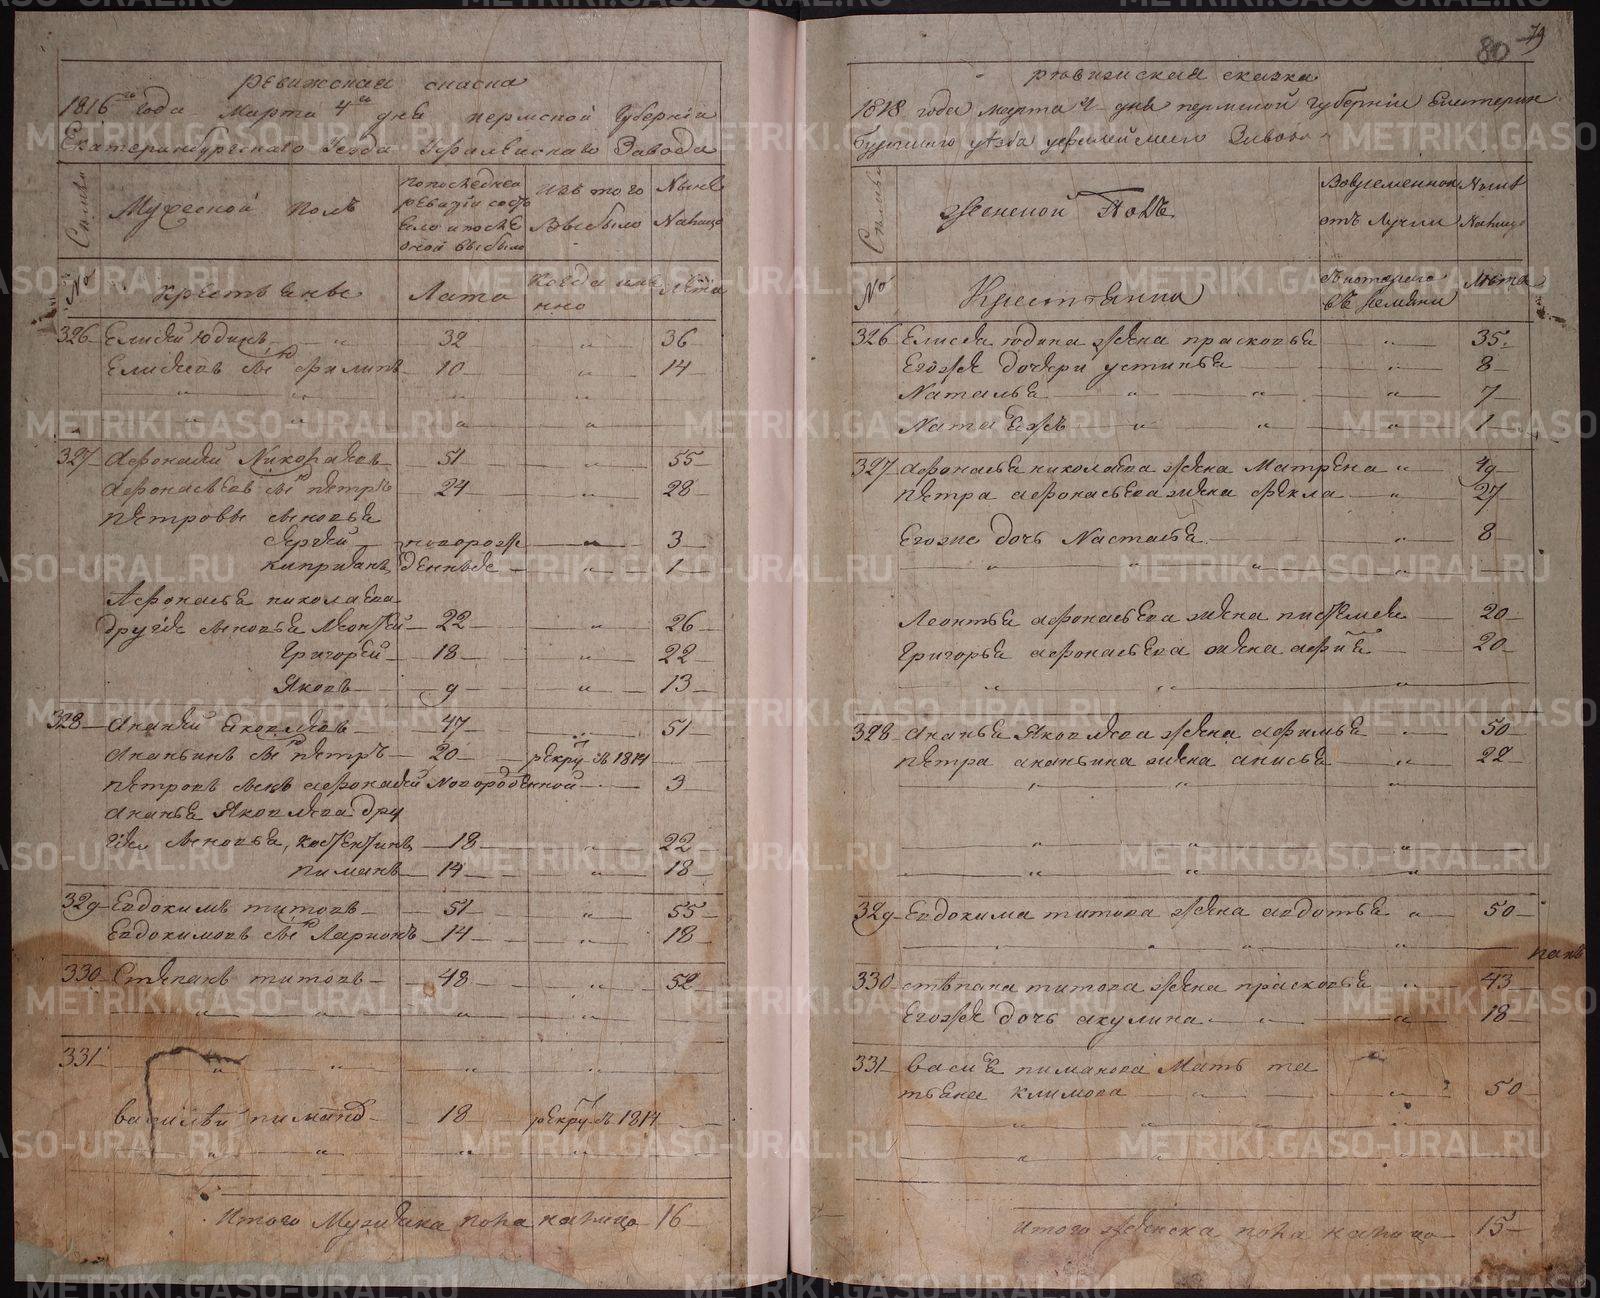 ревижская скаска
1816го года марта 4го дня пермской Губернiи
Екатеринбургскаго Уезда Уфалейскаго Завода
Мужеской полъ
попоследней ревизiи состояло и после оной выбыло
изъ того выбыло
Ныне налицо
Семьи
№
крестьяне
Лета
когда именно
Лета
326 Елисей Юдинъ 32 36
Елисеевъ сынъ филипъ 10 14
327 Афонасей Николаевъ 51 55
Афонасьевъ сынъ петръ 24 28
петровы сыновья
Сергей новорож 3
киприянъ денные 1
Афонасья николаева
другiе сыновья леонтей 22 26
Григорей 18 22
Яковъ 9 13
328 Ананей Яковлевъ 47 51
Ананьинъ сынъ петръ 20 рекру въ 1814
петровъ сынъ афонасей новорожденной 3
ананья Яковлева дру
гiе сыновья, костентинъ 18 22
пиманъ 14 18
329 Евдокимъ титовъ 51 55
Евдокимовъ сынъ Ларионъ 14 18
330 Степанъ титовъ 48 52
331
василей пимановъ 18 рекру въ 1814
Итого Мужеска пола налицо 16
80 79
ревижская сказка
1816 года марта 4 дня пермской губернiи Екатерин
бургского уезда уфалейского завода
Семьи
женской Полъ
Вовременной отълучки
Ныне налицо
№
Крестьянки
съкотораго времяни
Лета
326 Елисея юдина жена прасковья 35
Егоже дочери устинья 8
Наталья 7
Наталья жъ 1
327 Афонасья николаева жена Матрена 49
петра афонасьева жена фекла 27
Егоже дочь Настасья 8
Леонтья афонасьева жена пистемея 20
Григорья афонасьева жена афия 20
328 Ананья Яковлева жена афимья 50
петра ананьина жена анисья 22
329 Евдокима титова жена авдотья 50
пакъ
330 степана титова жена прасковья 43
Егоже дочь акулина 18
331 василья пиманова Мать та
тьяна климова 50
Итого женска пола налицо 15
METRIKI.GASO-URAL.RU